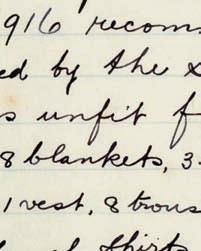 916 recom
ed by the
s unfit f
8 blankets, 3
1 vest, 8 trous
Shirts